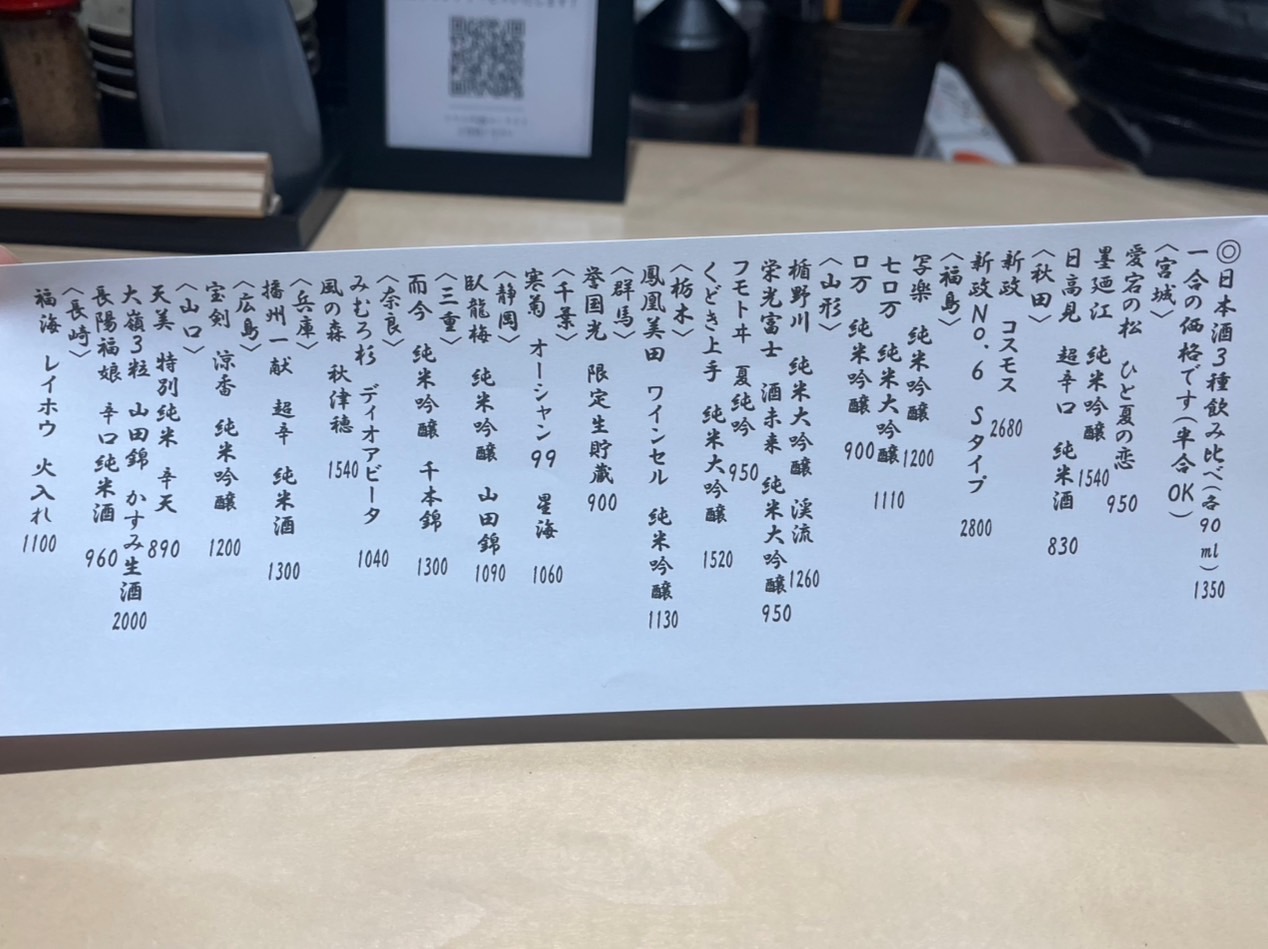 ◎日本酒3種飲み比べ(各90ml)1350
一合の価格です(半合OK)
〈宮城〉
愛宕の松 ひと夏の恋 950
墨廼江 純米吟醸 1540
日高見 超辛口 純米酒 830
〈秋田〉
新政 コスモス 2680
新政No.6 Sタイプ 2800
〈福島〉
写楽 純米吟醸 1200
七ロ万 純米大吟醸 1110
ロ万 純米吟醸 900
〈山形〉
楯野川 純米大吟醸 渓流 1260
栄光富士 酒未来 純米大吟醸 950
フモトヰ 夏純吟 950
くどき上手 純米大吟醸 1520
〈栃木〉
鳳凰美田 ワインセル 純米吟醸 1130
〈群馬〉
誉国光 限定生貯蔵 900
〈千葉〉
寒菊 オーシャン99 星海 1060
〈静岡〉
臥龍梅 純米吟醸 山田錦 1090
〈三重〉
而今 純米吟醸 千本錦 1300
〈奈良〉
みむろ杉 ディオアビータ 1040
風の森 秋津穂 1540
〈兵庫〉
播州一献 超辛 純米酒 1300
〈広島〉
宝剣 涼香 純米吟醸 1200
〈山口〉
天美 特別純米 辛天 890
大嶺3粒 山田錦 かすみ生酒 2000
長陽福娘 辛口純米酒 960
〈長崎〉
福海 レイホウ 火入れ 1100